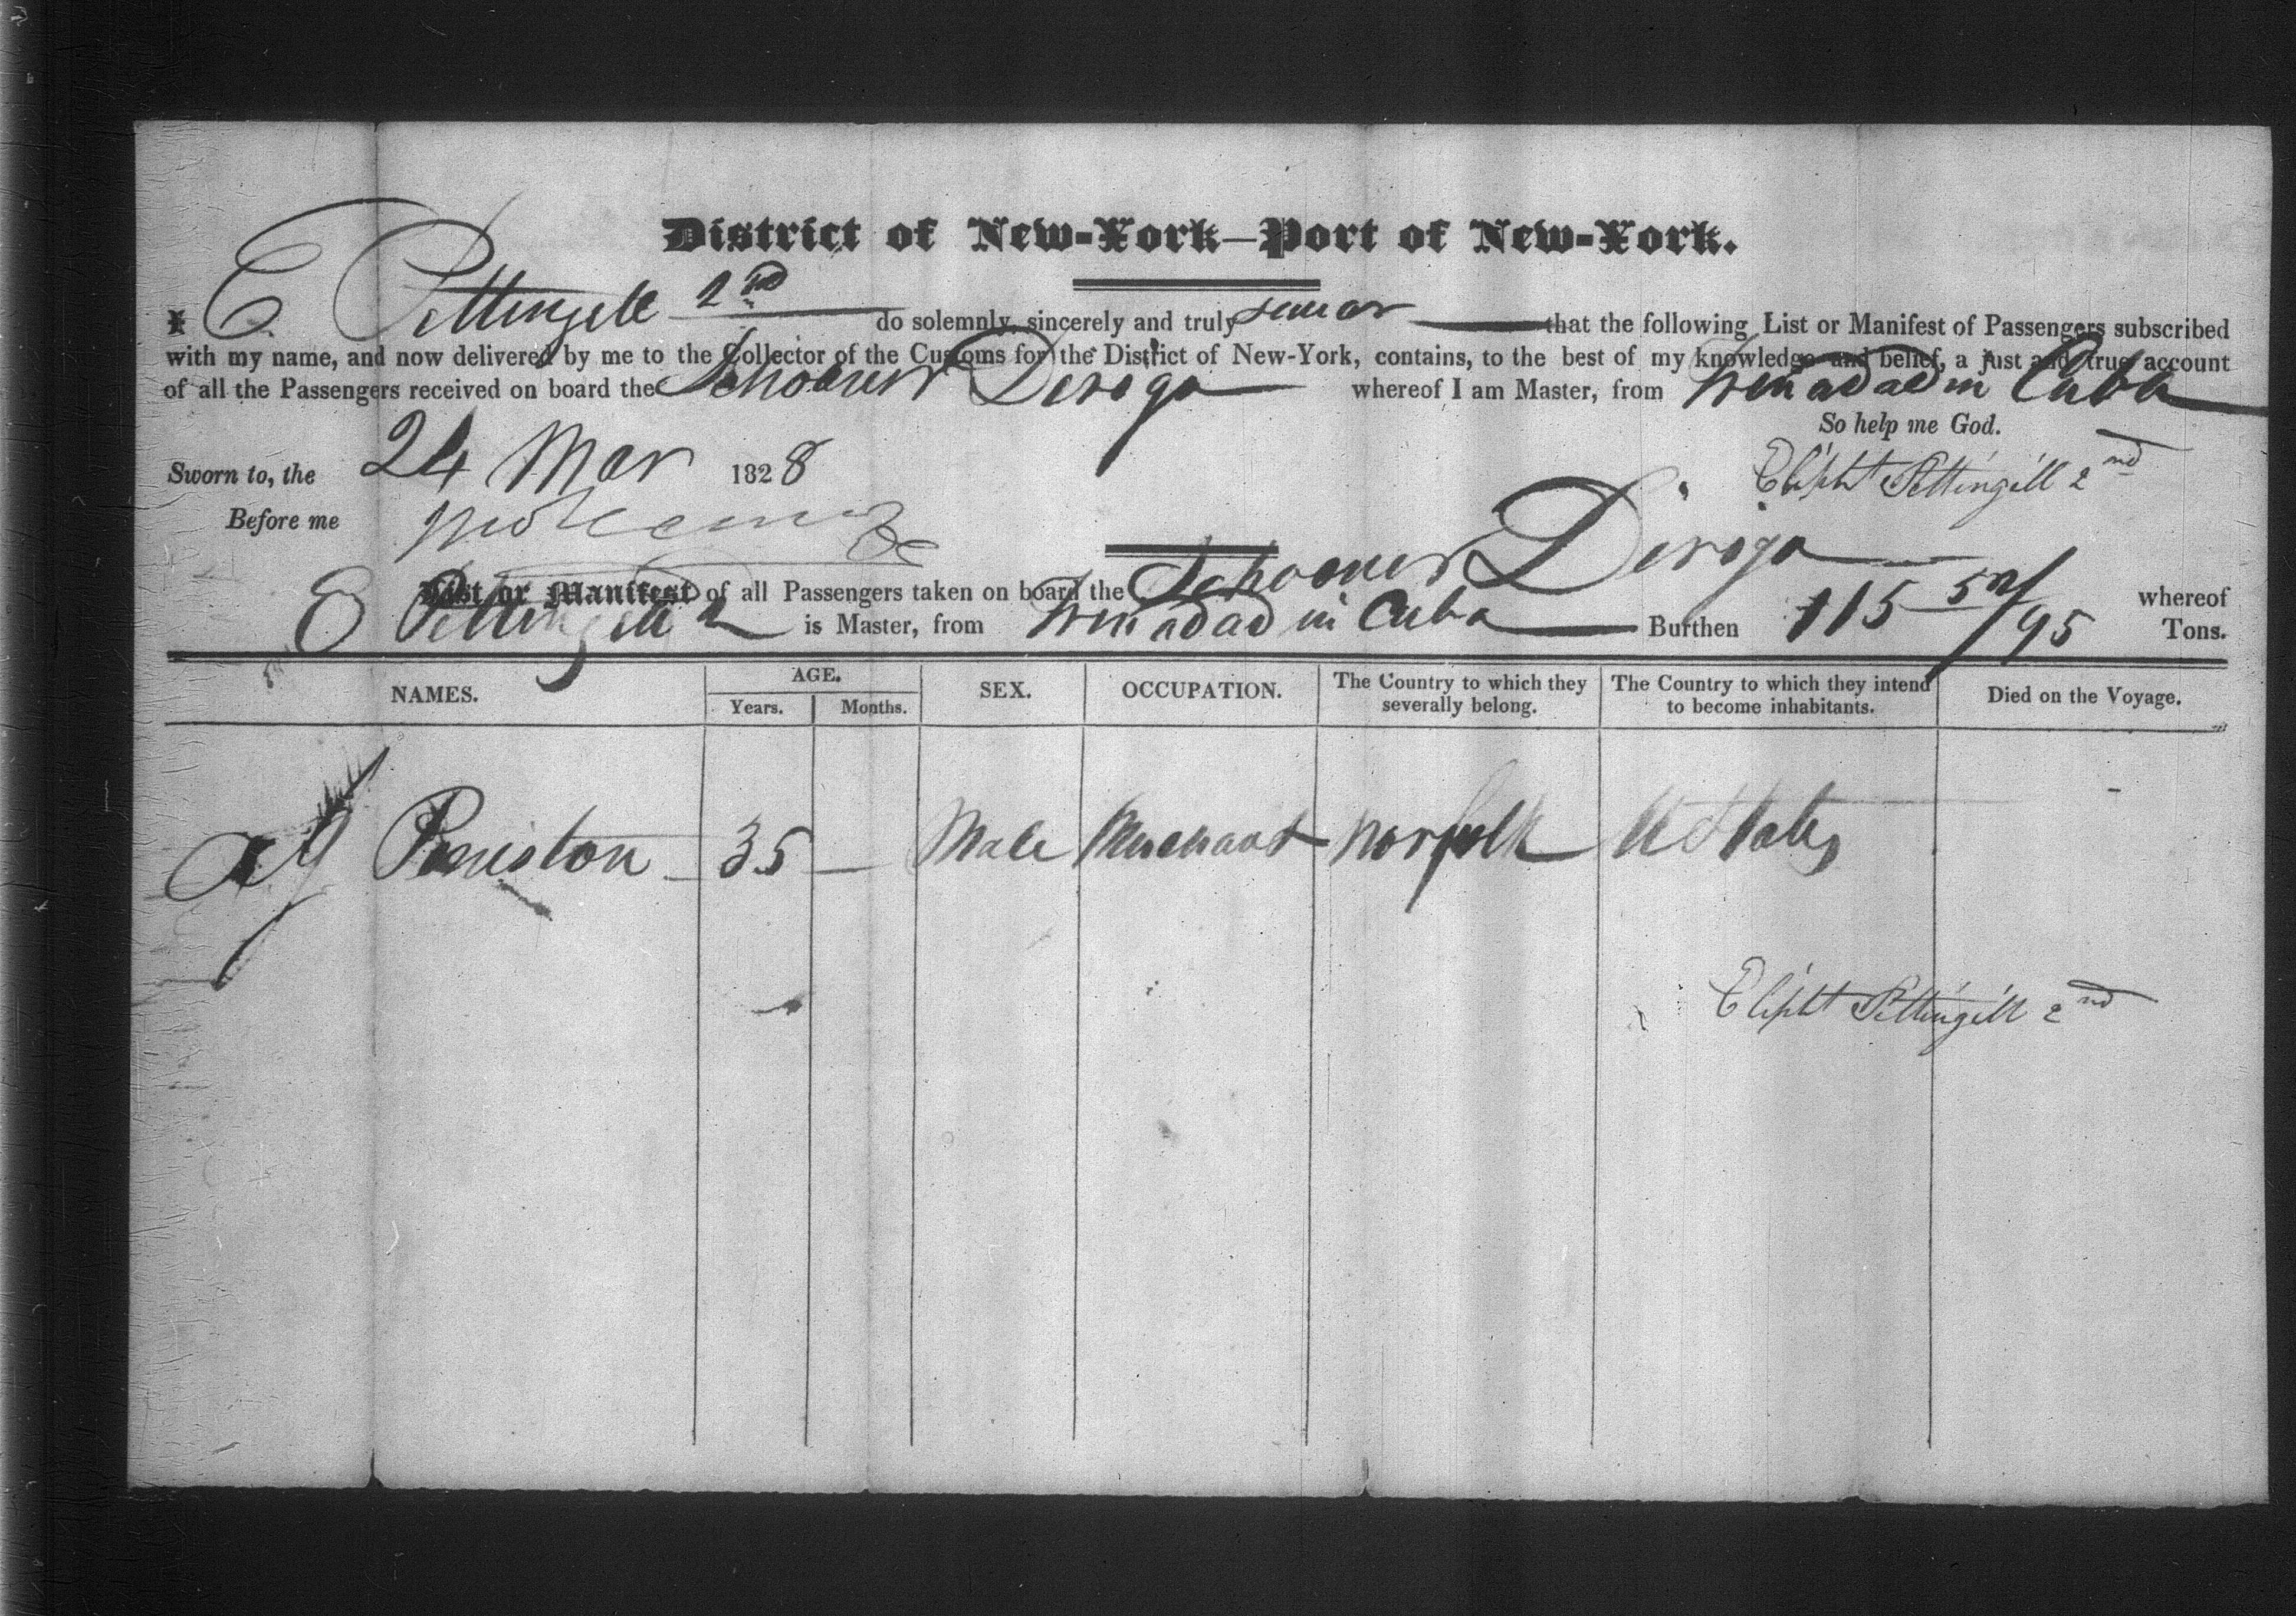 District of New-York—Port of New-York.
I E Pettingill 2nd do solemnly, sincerely and truly swear that the following List or Manifest of Passengers subscribed
with my name, and now delivered by me to the Collector of the Customs for the District of New-York, contains, to the best of my knowledge and belief, a just and true account
of all the Passengers received on board the Schooner Dirigo whereof I am Master, from Trinadad in Cuba
So help me God.
Sworn to, the 24 Mar 1828
Elipht Pettingill 2nd
Before me
List or Manifest of all Passengers taken on board the Schooner Dirigo whereof
E Pettingill 2 is Master, from Trinadad in Cuba Burthen 115 52/95 Tons.
NAMES. AGE. Years. Months. SEX. OCCUPATION. The Country to which they severally belong. The Country to which they intend to become inhabitants. Died on the Voyage.
Peniston 35 Male Merchant Norfolk U States
Elipht Pettingill 2nd